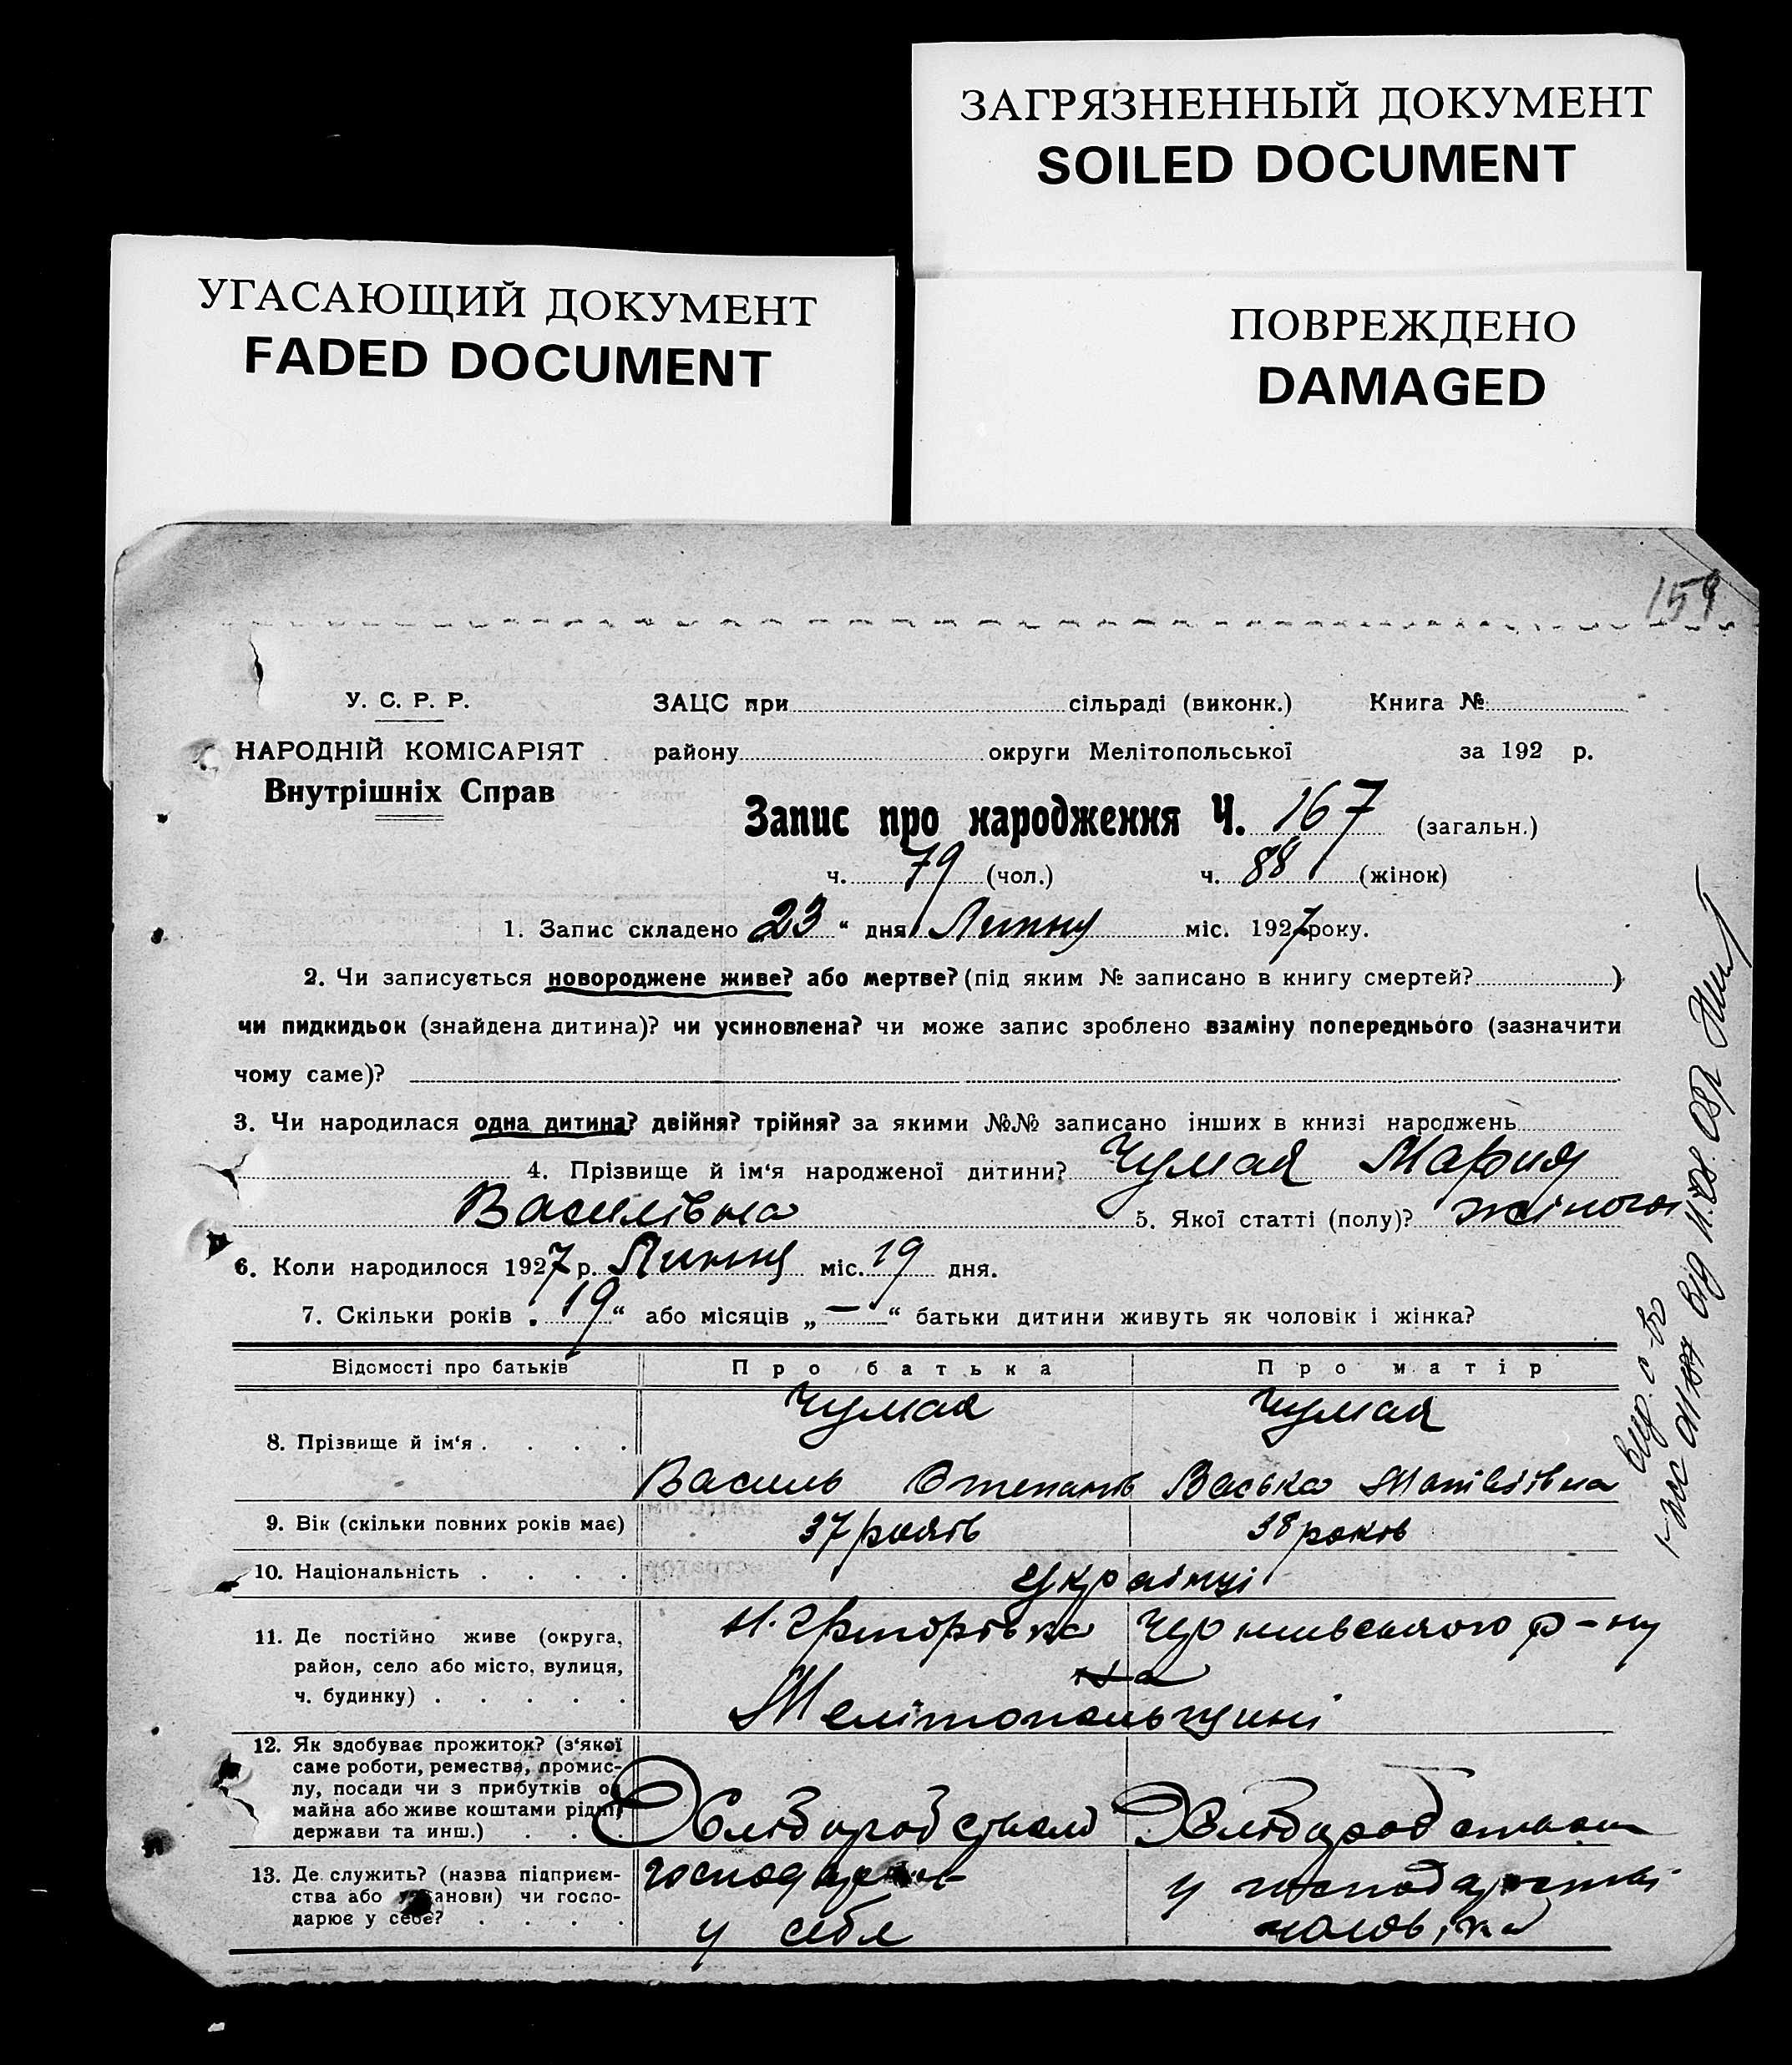 ЗАГРЯЗНЕННЫЙ ДОКУМЕНТ
SOILED DOCUMENT
УГАСАЮЩИЙ ДОКУМЕНТ
FADED DOCUMENT
ПОВРЕЖДЕНО
DAMAGED
159
У. С. Р. Р. ЗАЦС при сільраді (виконк.) Книга №
НАРОДНІЙ КОМІСАРІЯТ району округи Мелітопольської за 192 р.
Внутрішніх Справ
Запис про народження Ч. 167 (загальн.)
ч. 79 (чол.) ч. 88 (жінок)
1. Запис складено 23 “ дня Липня міс. 1927 року.
2. Чи записується новороджене живе? або мертве? (під яким № записано в книгу смертей? )
чи пидкидьок (знайдена дитина)? чи усиновлена? чи може запис зроблено взаміну попереднього (зазначити
чому саме)?
3. Чи народилася одна дитина? двійня? трійня? за якими №№ записано інших в книзі народжень
4. Прізвище й ім‘я народженої дитини? Чумак Мария
Василівна 5. Якої статті (полу)? жіночої
6. Коли народилося 1927 р. Липня міс. 19 дня.
7. Скільки років „ 19 “ або місяців „ — “ батьки дитини живуть як чоловік і жінка?
Відомості про батьків Про батька Про матір
Чумак Чумак
8. Прізвище й ім‘я
Василь Степанів Васька Матвіївна
9. Вік (скільки повних років має) 37 років 38 років
10. Національність українці
11. Де постійно живе (округа, Н. Григорівка Чернивського р-ну
район, село або місто, вулиця, на
ч. будинку) Мелітопольщині
12. Як здобуває прожиток? (з‘якої
саме роботи, ремества, промис-
лу, посади чи з прибутків од
майна або живе коштами рідні,
держави та инш.) Хліборобством Хліборобством
13. Де служить? (назва підприєм- у господарстві
ства або установи) чи госпо-
дарює у себе? у себе чоловіка